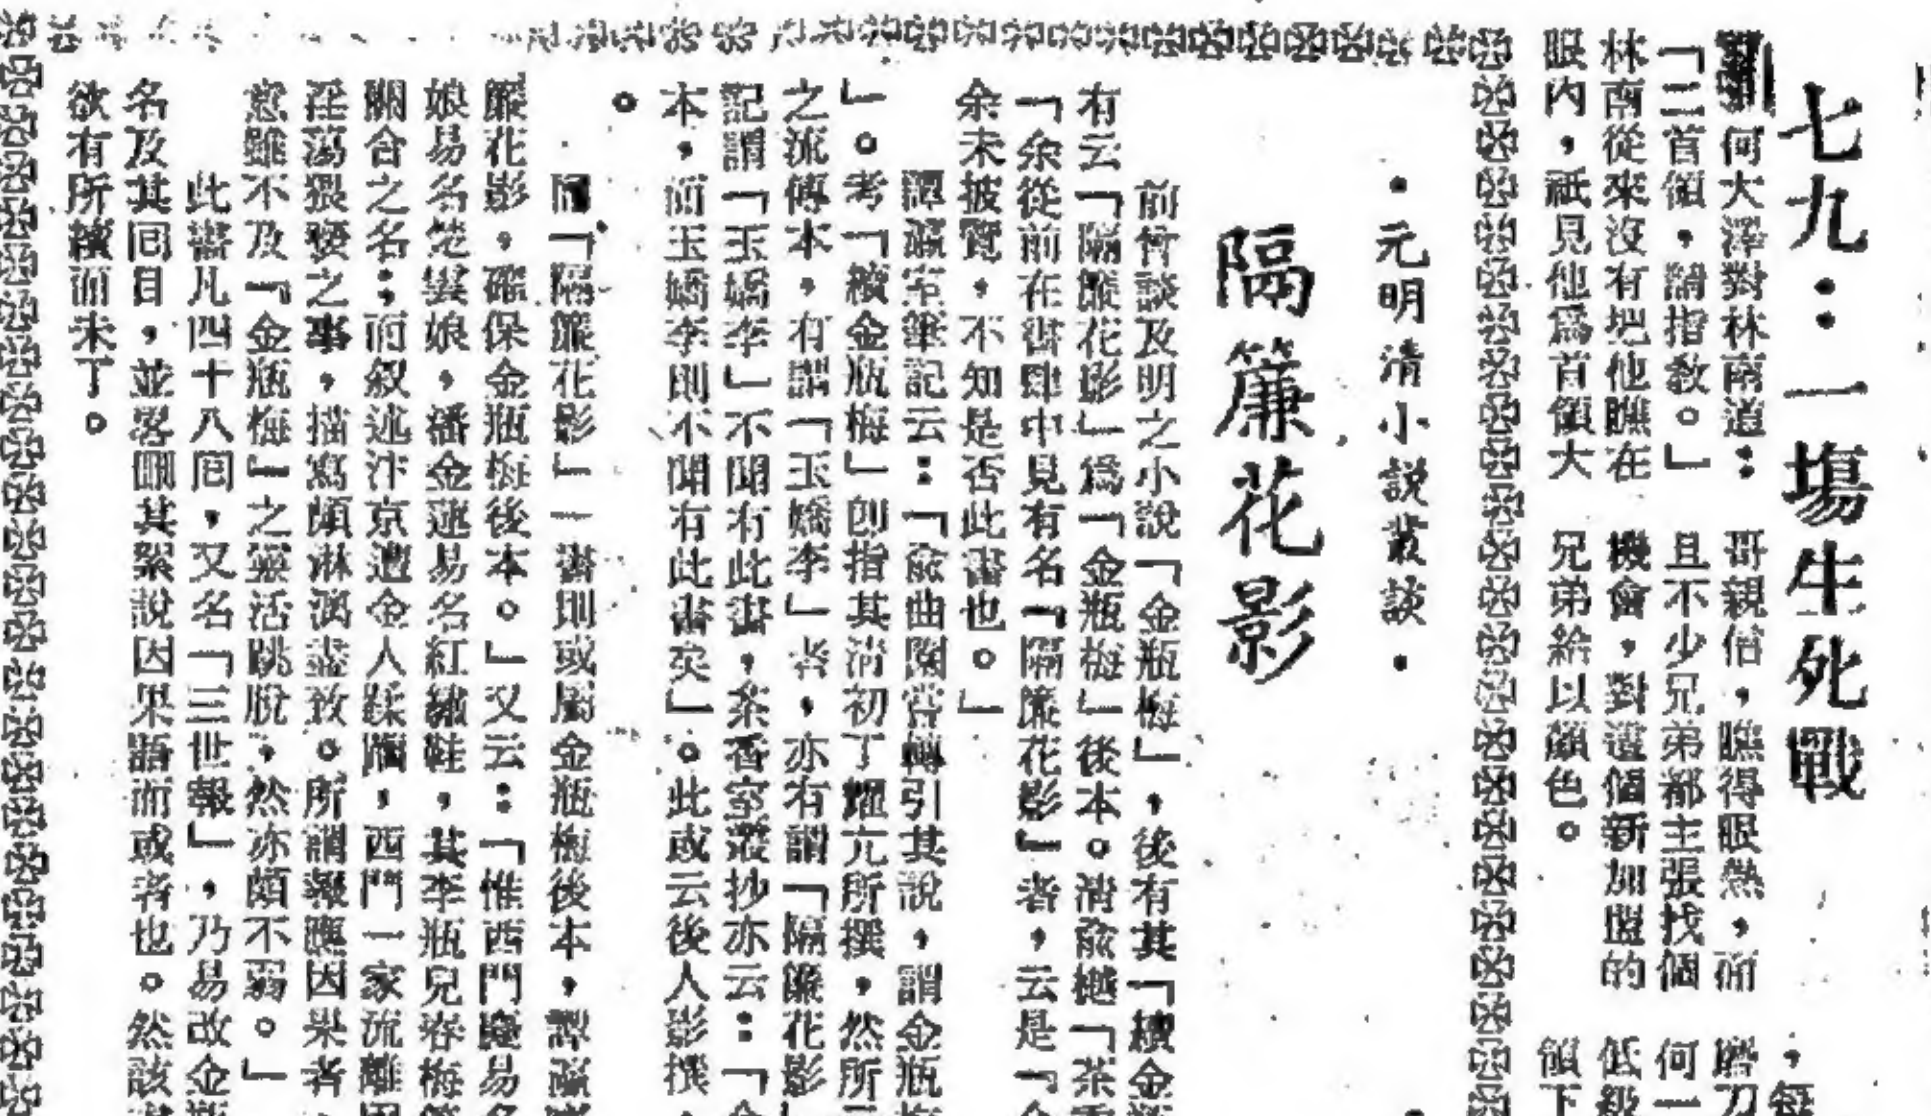 七九：一塲牛死戰
何大澤對林南道：
「二首領，請指敎。」
林南從來沒有把他瞧在
眼內，祇見他爲首領大
哥親信，瞧得眼熱，而
且不少兄弟都主張找個
機會，對這個新加盟的
兄弟給以顏色。
，每
磨刀
何一
低級
領下
•元明清小説叢談•
隔簾花影
前曾談及明之小說「金瓶梅」，後有其「續金瓶
有云「隔簾花影」爲「金瓶梅」後本。清兪樾「茶香
「余從前在書肆中見有名「隔簾花影」者，云是「金
余未披覽，不知是否此書也。」
譚瀛室筆記云：「兪曲園嘗轉引其說，謂金瓶梅
」。考「續金瓶梅」創指其清初丁耀亢所撰，然所
之流傳本，有謂「玉嬌李」者，亦有謂「隔簾花影」
記謂「玉嬌李」不聞有此書，茶香室叢抄亦云：「金
本，而玉嬌李則不聞有此書矣」。此或云後人影撰，
。
「隔簾花影」一書則或屬金瓶梅後本，譚瀛
簾花影，確保金瓶梅後本。」又云：「惟西門慶易名
娘易名楚雲娘，潘金蓮易名紅繡鞋，其李瓶兒春梅
關合之名；而叙述汴京遭金人蹂躪，西門一家流離
淫蕩猥褻之事，描寫頗淋漓盡致。所謂報應因果者，
意雖不及「金瓶梅」之靈活跳脫，然亦頗不弱。」
此書凡四十八囘，又名「三世報」，乃易改金瓶
名及其囘目，並畧刪其絮說因果語而成者也。然該
欲有所續而未了。